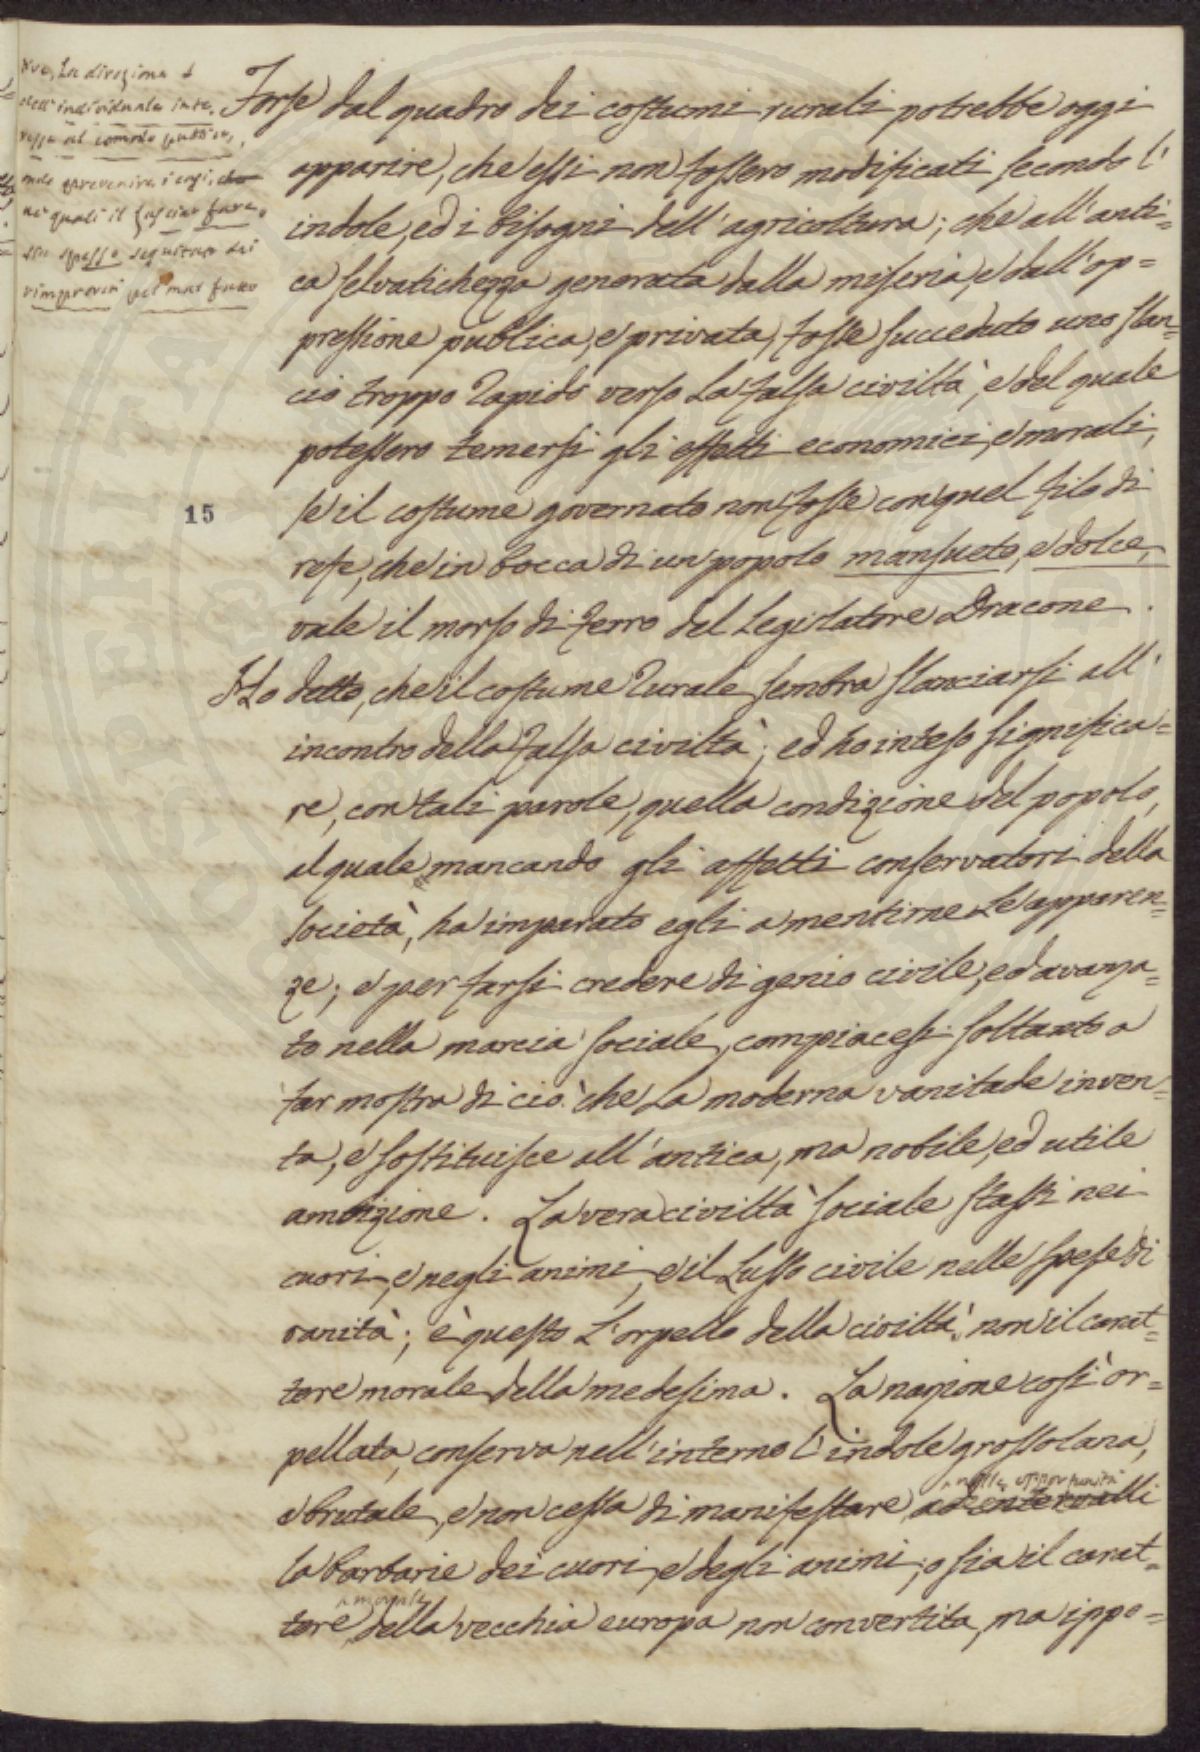 rve, la direzione
dell'individuale inte-
resse al comodo pubblico,
onde prevenire i casi,
ne' quali il lasciar fare,
sia spesso seguitato dai
rimproveri pel mal fatto
Forse dal quadro dei costumi rurali potrebbe oggi
apparire, che essi non fossero modificati secondo l'
indole, ed i bisogni dell'agricoltura; che all'anti=
ca selvatichezza generata dalla miseria, e dall'op=
pressione publica, e privata, fosse succeduto uno slan=
cio troppo rapido verso la falsa civiltà, e del quale
potessero temersi gli effetti economici, e morali,
se il costume governato non fosse con quel filo di
refe, che in bocca di un popolo mansueto, e dolce,
vale il morso di ferro del Legislatore Dracone.
15
Ho detto, che il costume rurale sembra slanciarsi all'
incontro della falsa civiltà; ed ho inteso significa=
re, con tali parole, quella condizione del popolo,
al quale mancando gli affetti conservatori della
società, ha imparato egli a mentirne le apparen=
ze; e per farsi credere di genio civile, ed avanza=
to nella marcia sociale, compiacesi soltanto a
far mostra di ciò che la moderna vanitade inven=
ta, e sostituisce all'antica, ma nobile, ed utile
ambizione. La vera civiltà sociale stassi nei
cuori, e negli animi, e il Lusso civile nelle spese di
vanità; è questo l'orpello della civiltà, non il carat=
tere morale della medesima. La nazione così or=
pellata, conserva nell'interno l'indole grossolana,
nelle opportunità
e brutale, e non cessa di manifestare ad intervalli
la barbarie dei cuori, e degli animi, o sia il carat=
morale
tere della vecchia europa non convertita, ma ippo=